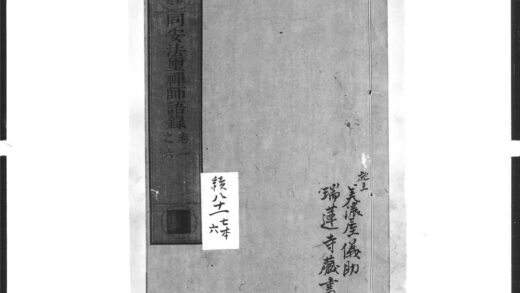 同安法璽禪師語錄 卷一之六
續八十一 七本
六
施主
美濃屋儀助
瑞蓮寺藏書